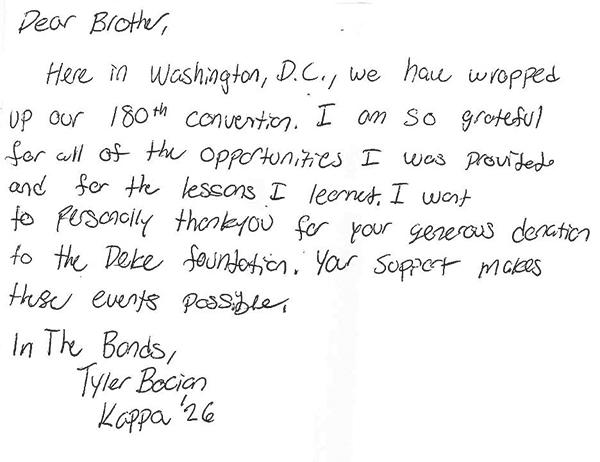 Dear Brother,
Here in Washington, D.C., we have wrapped
up our 180th convention. I am so grateful
for all of the opportunities I was provided
and for the lessons I learned. I want
to personally thankyou for your generous donation
to the Deke foundation. Your support makes
these events possible.
In The Bonds,
Tyler Bocian
Kappa '26